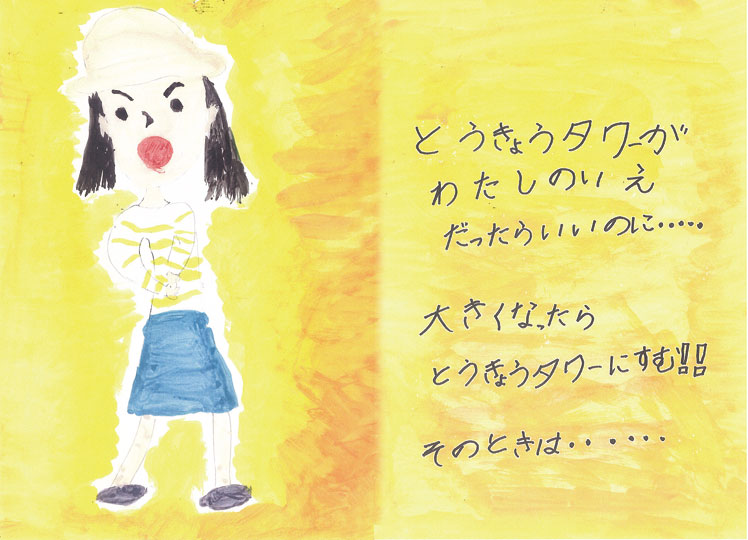 とうきょうタワーが
わたしのいえ
だったらいいのに・・・・・
大きくなったら
とうきょうタワーにすむ!!
そのときは・・・・・・